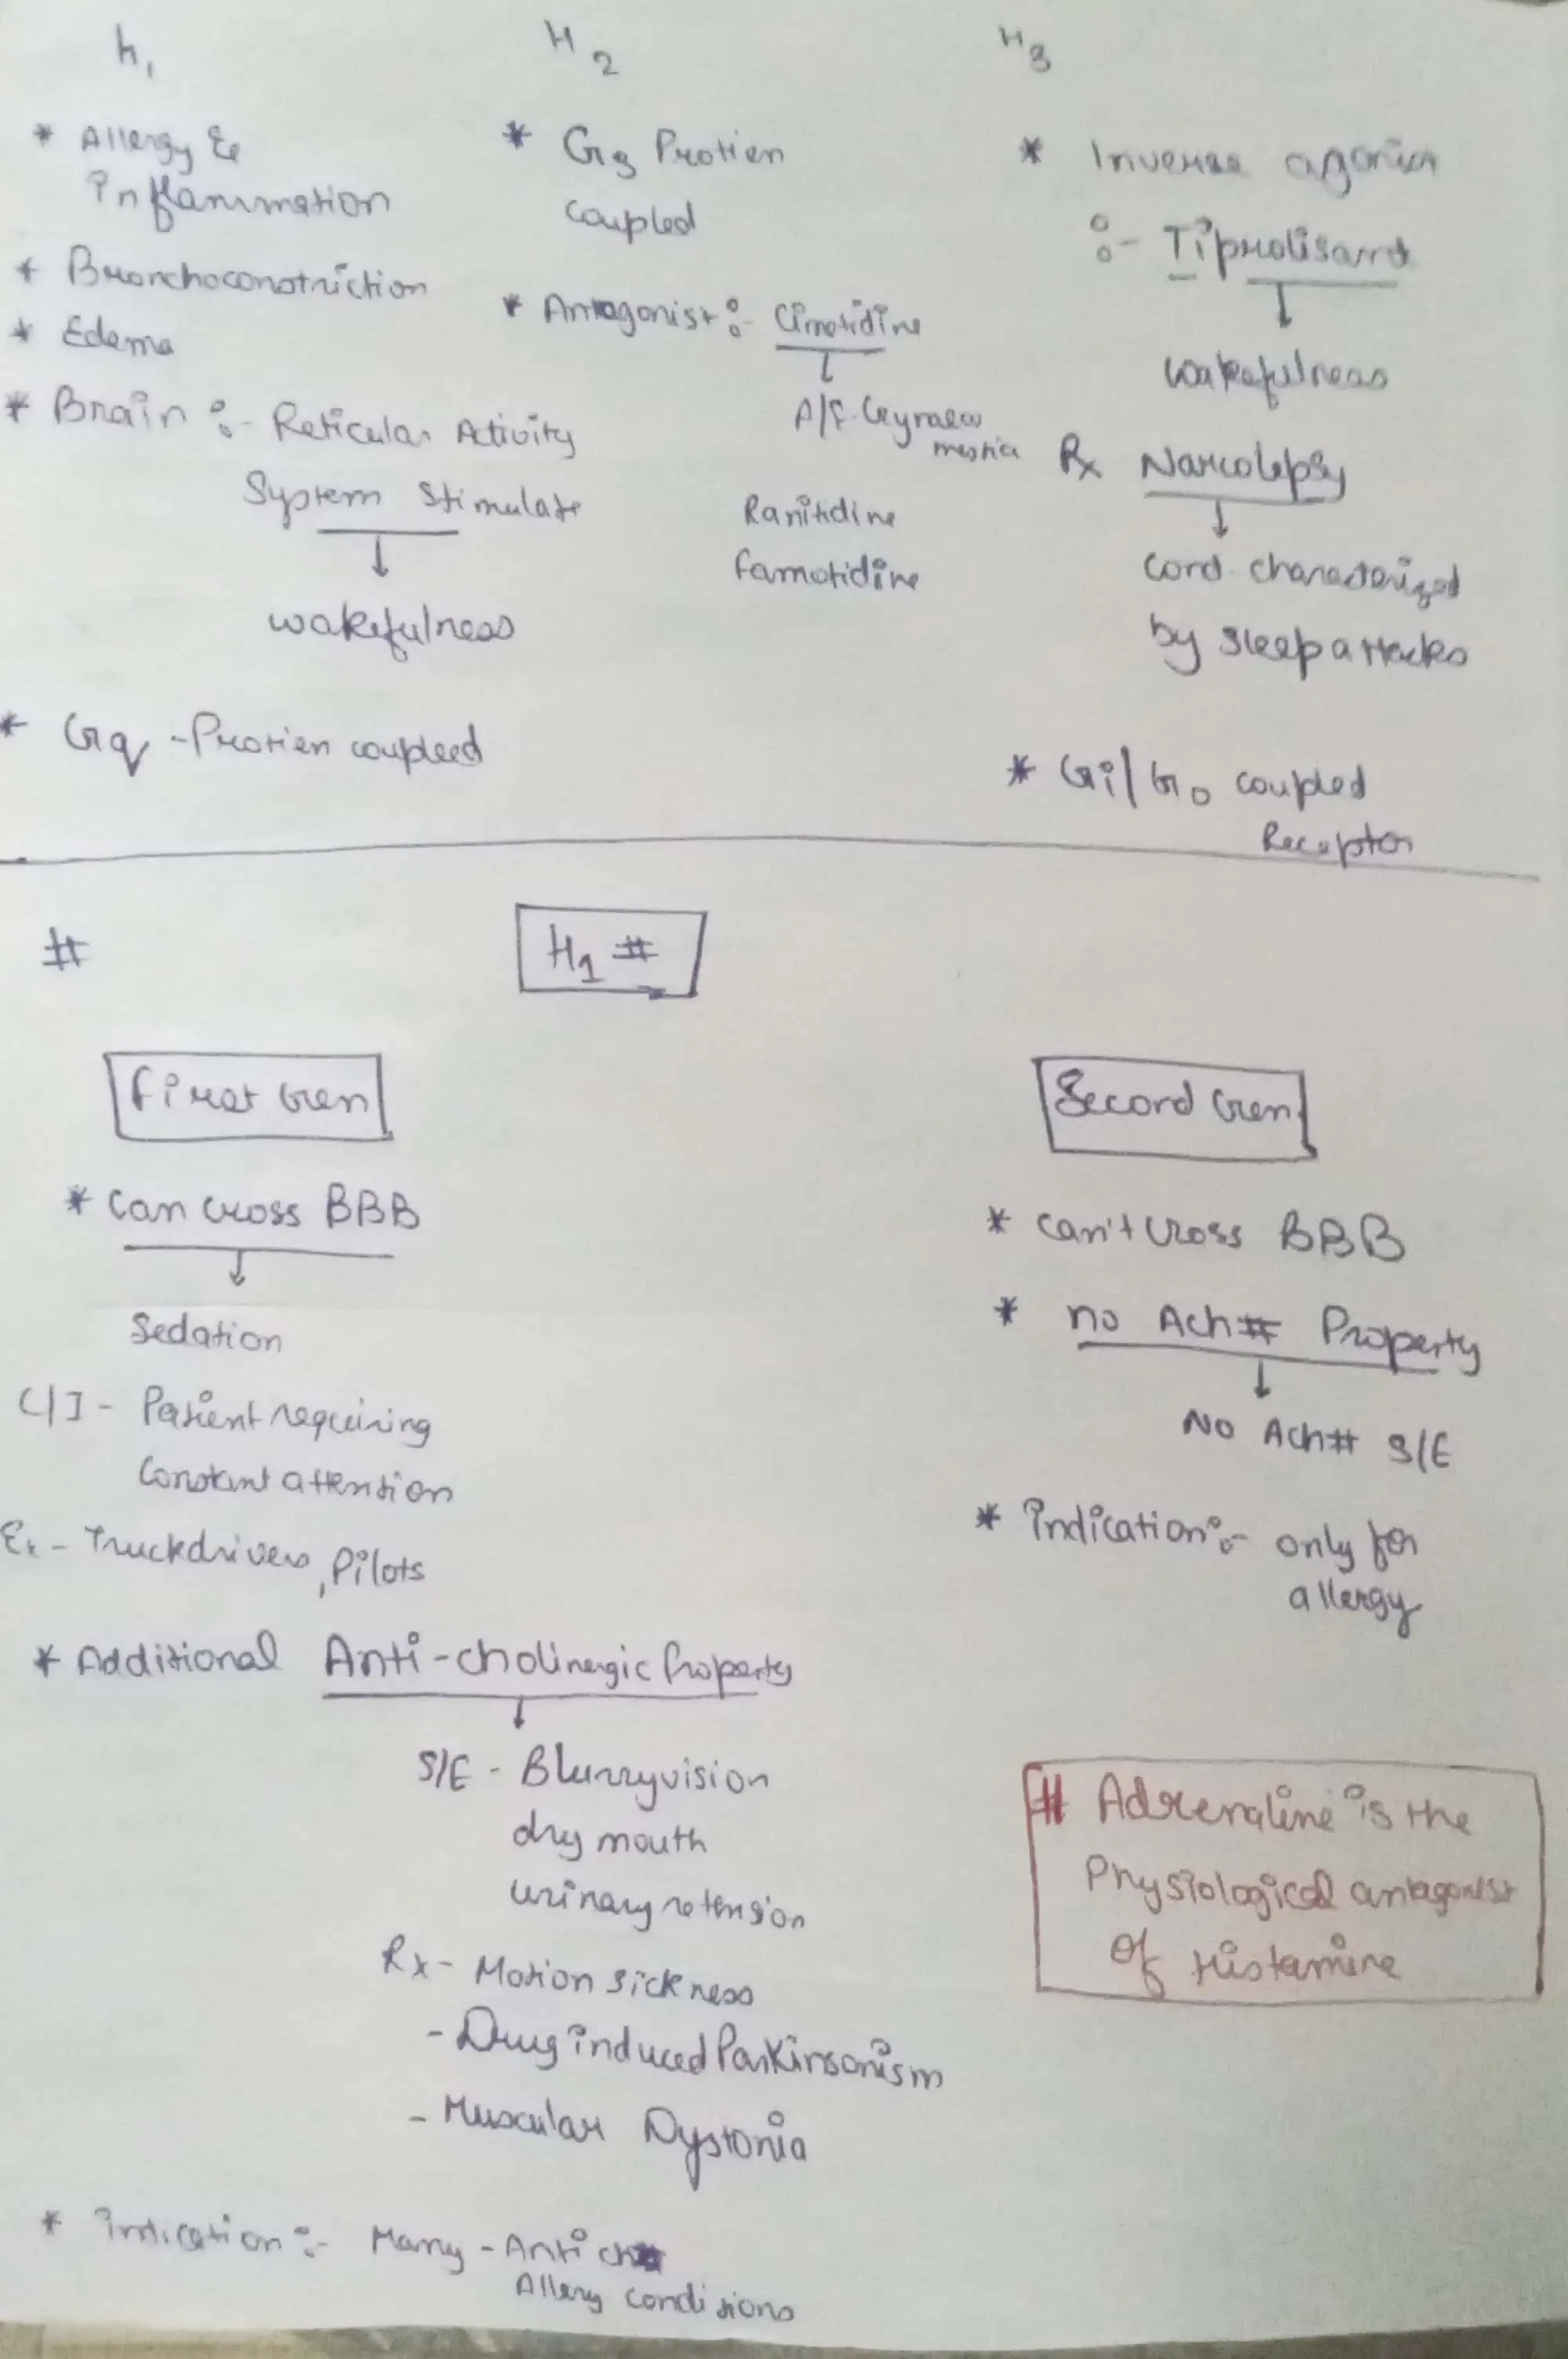 h1
* Allergy &
inflammation
* Bronchoconstriction
* Edema
* Brain :- Reticular Activity
System Stimulate
↓
wakefulness
* Gq - Protien coupleed
H2
* Gs Protien
coupled
* Antagonist :- Cimetidine
↓
A/E - Gynaeco
mastia
Ranitidine
famotidine
H3
* Inverse agonist
:- Tiprolisant
↓
wakefulness
Rx Narcolepsy
↓
cond. characterized
by sleep attacks
* Gi/Go coupled
Receptor
#
H1 #
First Gen
* Can cross BBB
↓
Sedation
C/I - Patient requiring
Constant attention
Ex - Truckdrivers, Pilots
* Additional Anti-cholinergic Property
↓
S/E - Blurryvision
dry mouth
urinary retension
Rx - Motion sickness
- Drug induced Parkinsonism
- Muscular Dystonia
* Indication :- Many - Anti ch#
Allery conditions
Second Gen.
* can't cross BBB
* no Ach# Property
↓
No Ach# S/E
* Indication :- only for
allergy
# Adrenaline is the
Physiological antagonist
of Histamine